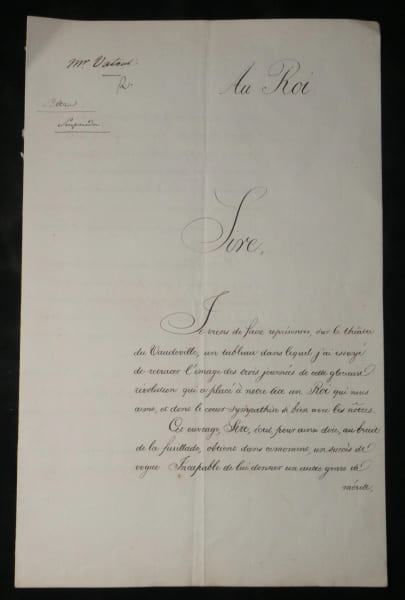 Mr Vatout.
Au Roi
Sire,
Je viens de faire représenter, sur le théâtre
du Vaudeville, un tableau dans lequel j'ai essayé
de retracer l'image des trois journées de cette glorieuse
révolution qui a placé à notre tête un Roi qui nous
aime, et dont le cœur sympathise si bien avec les nôtres.
Cet ouvrage, Sire, écrit, pour ainsi dire, au bruit
de la fusillade, obtient dans ce moment, un succès de
vogue Incapable de lui donner un autre genre de
mérite,